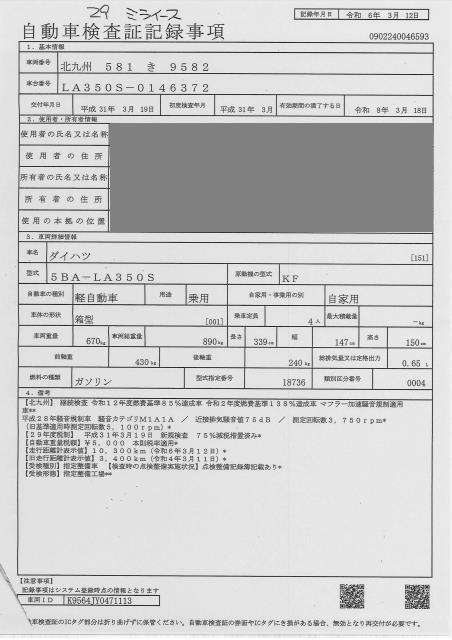 29 ミライース
記録年月日 令和 6年 3月 12日
自動車検査証記録事項
0902240046593
1. 基本情報
車両番号 北九州 581 き 9582
車台番号 LA350S-0146372
交付年月日 平成 31年 3月 19日 初度検査年月 平成 31年 3月 有効期間の満了する日 令和 8年 3月 18日
2. 使用者・所有者情報
使用者の氏名又は名称
使用者の住所
所有者の氏名又は名称
所有者の住所
使用の本拠の位置
3. 車両詳細情報
車名 ダイハツ [151]
型式 5BA-LA350S 原動機の型式 KF
自動車の種別 軽自動車 用途 乗用 自家用・事業用の別 自家用
車体の形状 箱型 [001] 乗車定員 4人 最大積載量 -kg
車両重量 670kg 車両総重量 890kg 長さ 339cm 幅 147cm 高さ 150cm
前軸重 430kg 後軸重 240kg 総排気量又は定格出力 0.65L
燃料の種類 ガソリン 型式指定番号 18736 類別区分番号 0004
4. 備考
【北九州】 継続検査 令和12年度燃費基準85%達成車 令和2年度燃費基準138%達成車 マフラー加速騒音規制適用
車**
平成28年騒音規制車 騒音カテゴリM1A1A / 近接排気騒音値75dB / 測定回転数3,750rpm*
(旧基準適用時測定回転数5,100rpm)*
【29年度税制】 平成31年3月19日 新規検査 75%減税措置済み*
【自動車重量税額】 ¥5,000 本則税率適用*
【走行距離計表示値】 10,300km (令和6年3月12日)*
【旧走行距離計表示値】 3,400km (令和4年3月11日)*
【受検種別】指定整備車 【検査時の点検整備実施状況】点検整備記録簿記載あり*
【受検形態】指定整備工場**
【注意事項】
記録事項はシステム登録時点の情報となります
車両ID K9564JY0471113
車検査証のICタグ部分は折り曲げずに保管ください。自動車検査証の券面やICタグにき損がある場合、無効となり再交付が必要です。